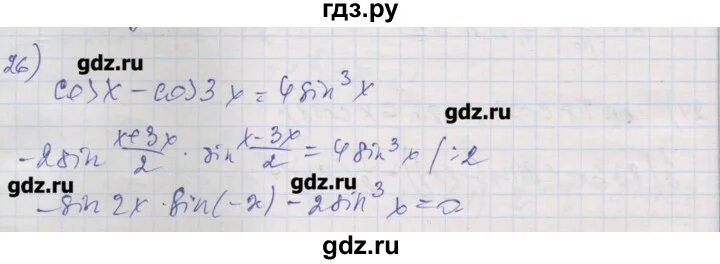 гдз.ру
26)
gdz.ru
cos x - cos 3x = 4 sin³ x
gdz.ru
-2 sin (x+3x)/2 · sin (x-3x)/2 = 4 sin³ x /:2
gdz.ru gdz.ru
- sin 2x · sin(-x) - 2 sin³ x = 0
gdz.ru